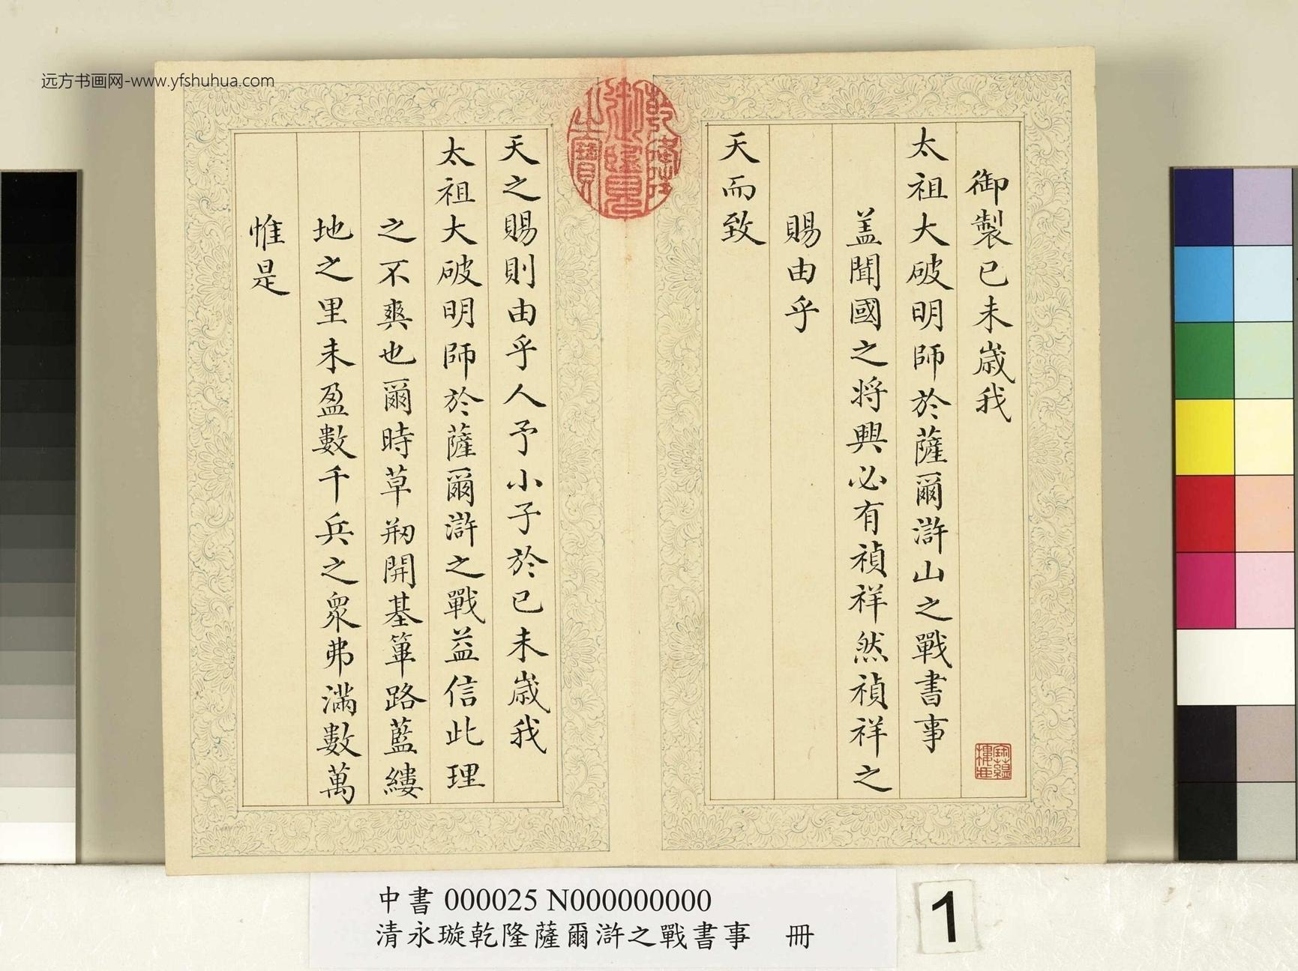 远方书画网-www.yfshuhua.com
乾隆御覽之寶
御製己未嵗我
太祖大破明師於薩爾滸山之戰書事
盖聞國之將興必有禎祥然禎祥之
賜由乎
天而致
天之賜則由乎人予小子於己未嵗我
太祖大破明師於薩爾滸之戰益信此理
之不爽也爾時草刱開基篳路藍縷
地之里未盈數千兵之衆弗滿數萬
惟是
中書 000025 N000000000
清永璇乾隆薩爾滸之戰書事 冊
1